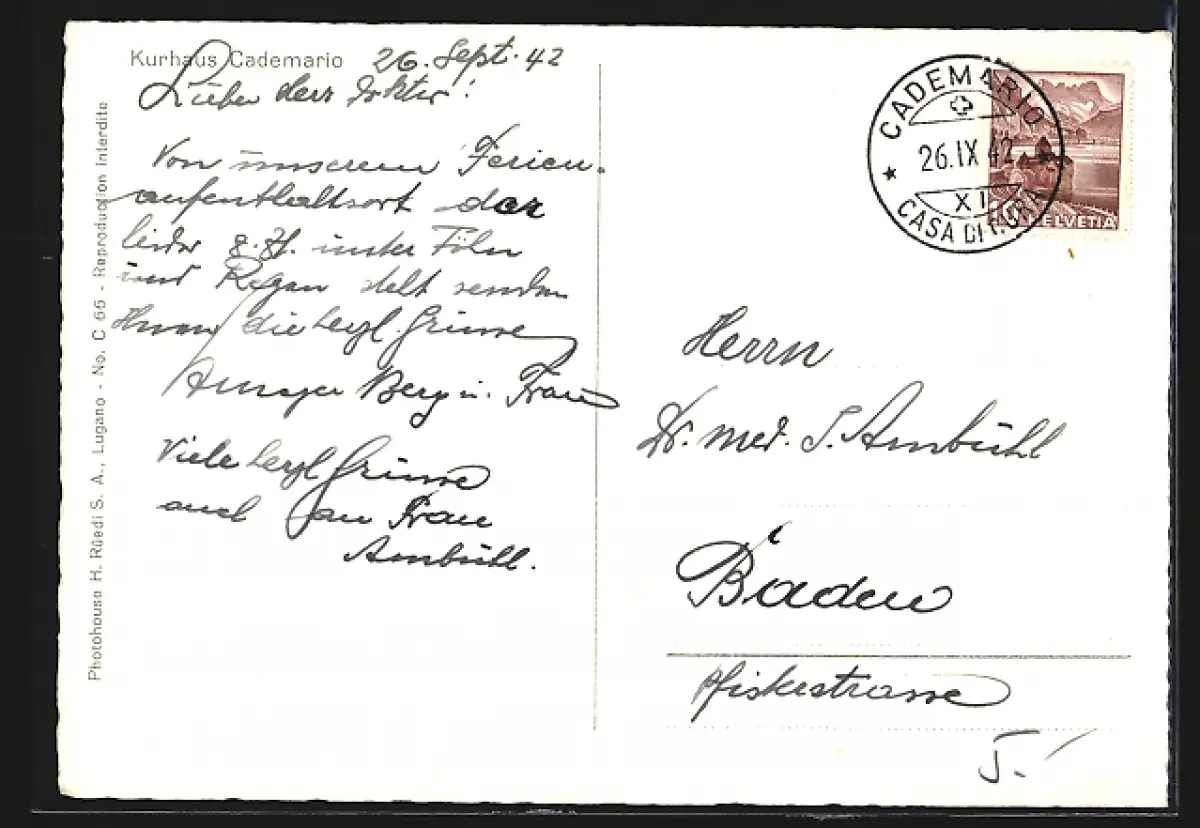 Kurhaus Cademario 26. Sept. 42
Lieber Herr Doktor!
Von unserem Ferien-
aufenthaltsort der
leider z. Zt. unter Föhn
und Regen steht senden
Ihnen die herzl. Grüsse
Berg u. Frau
Viele herzl Grüsse
auch an Frau
Ambühl.
Photohouse H. Rüedi S. A., Lugano - No. C 66 - Reproduction interdite
CADEMARIO
26.IX 42
XI
CASA DI CURA
HELVETIA
Herrn
Dr. med. J. Ambühl
Baden
Pfisterstrasse